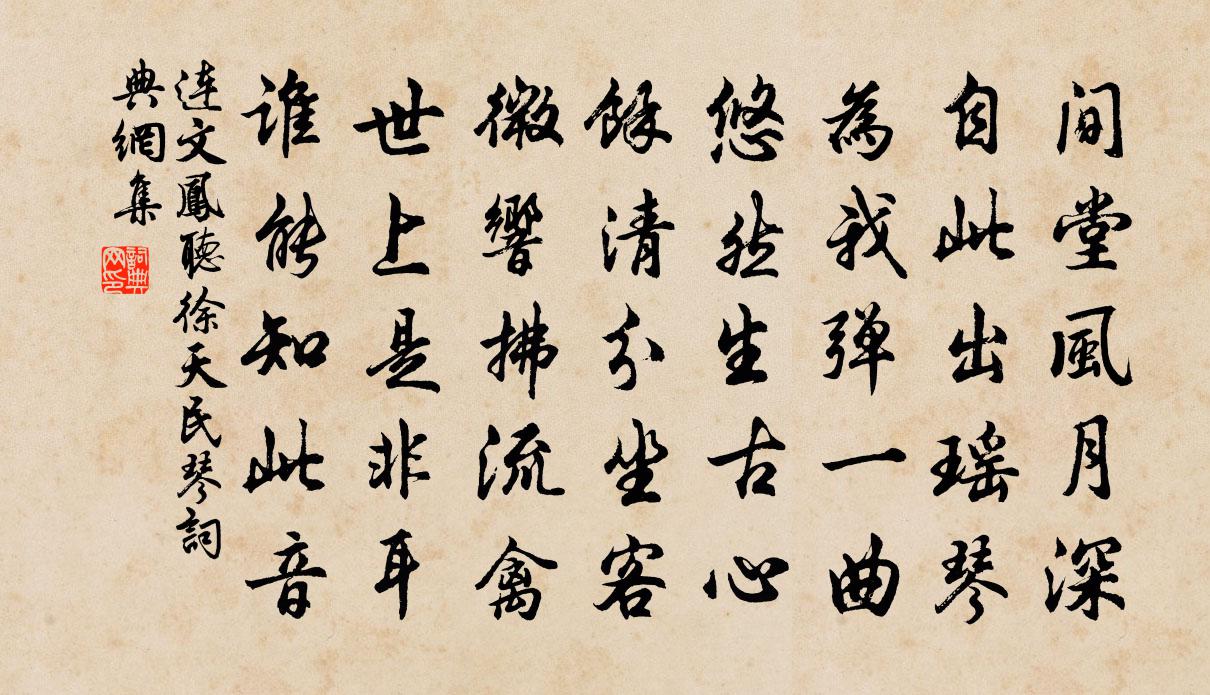 间堂風月深
自此出瑶琴
為我弹一曲
悠然生古心
餘清分坐客
微響拂流禽
世上是非耳
谁能知此音
连文鳳聽徐天民琴詞
典網集
詞典网印